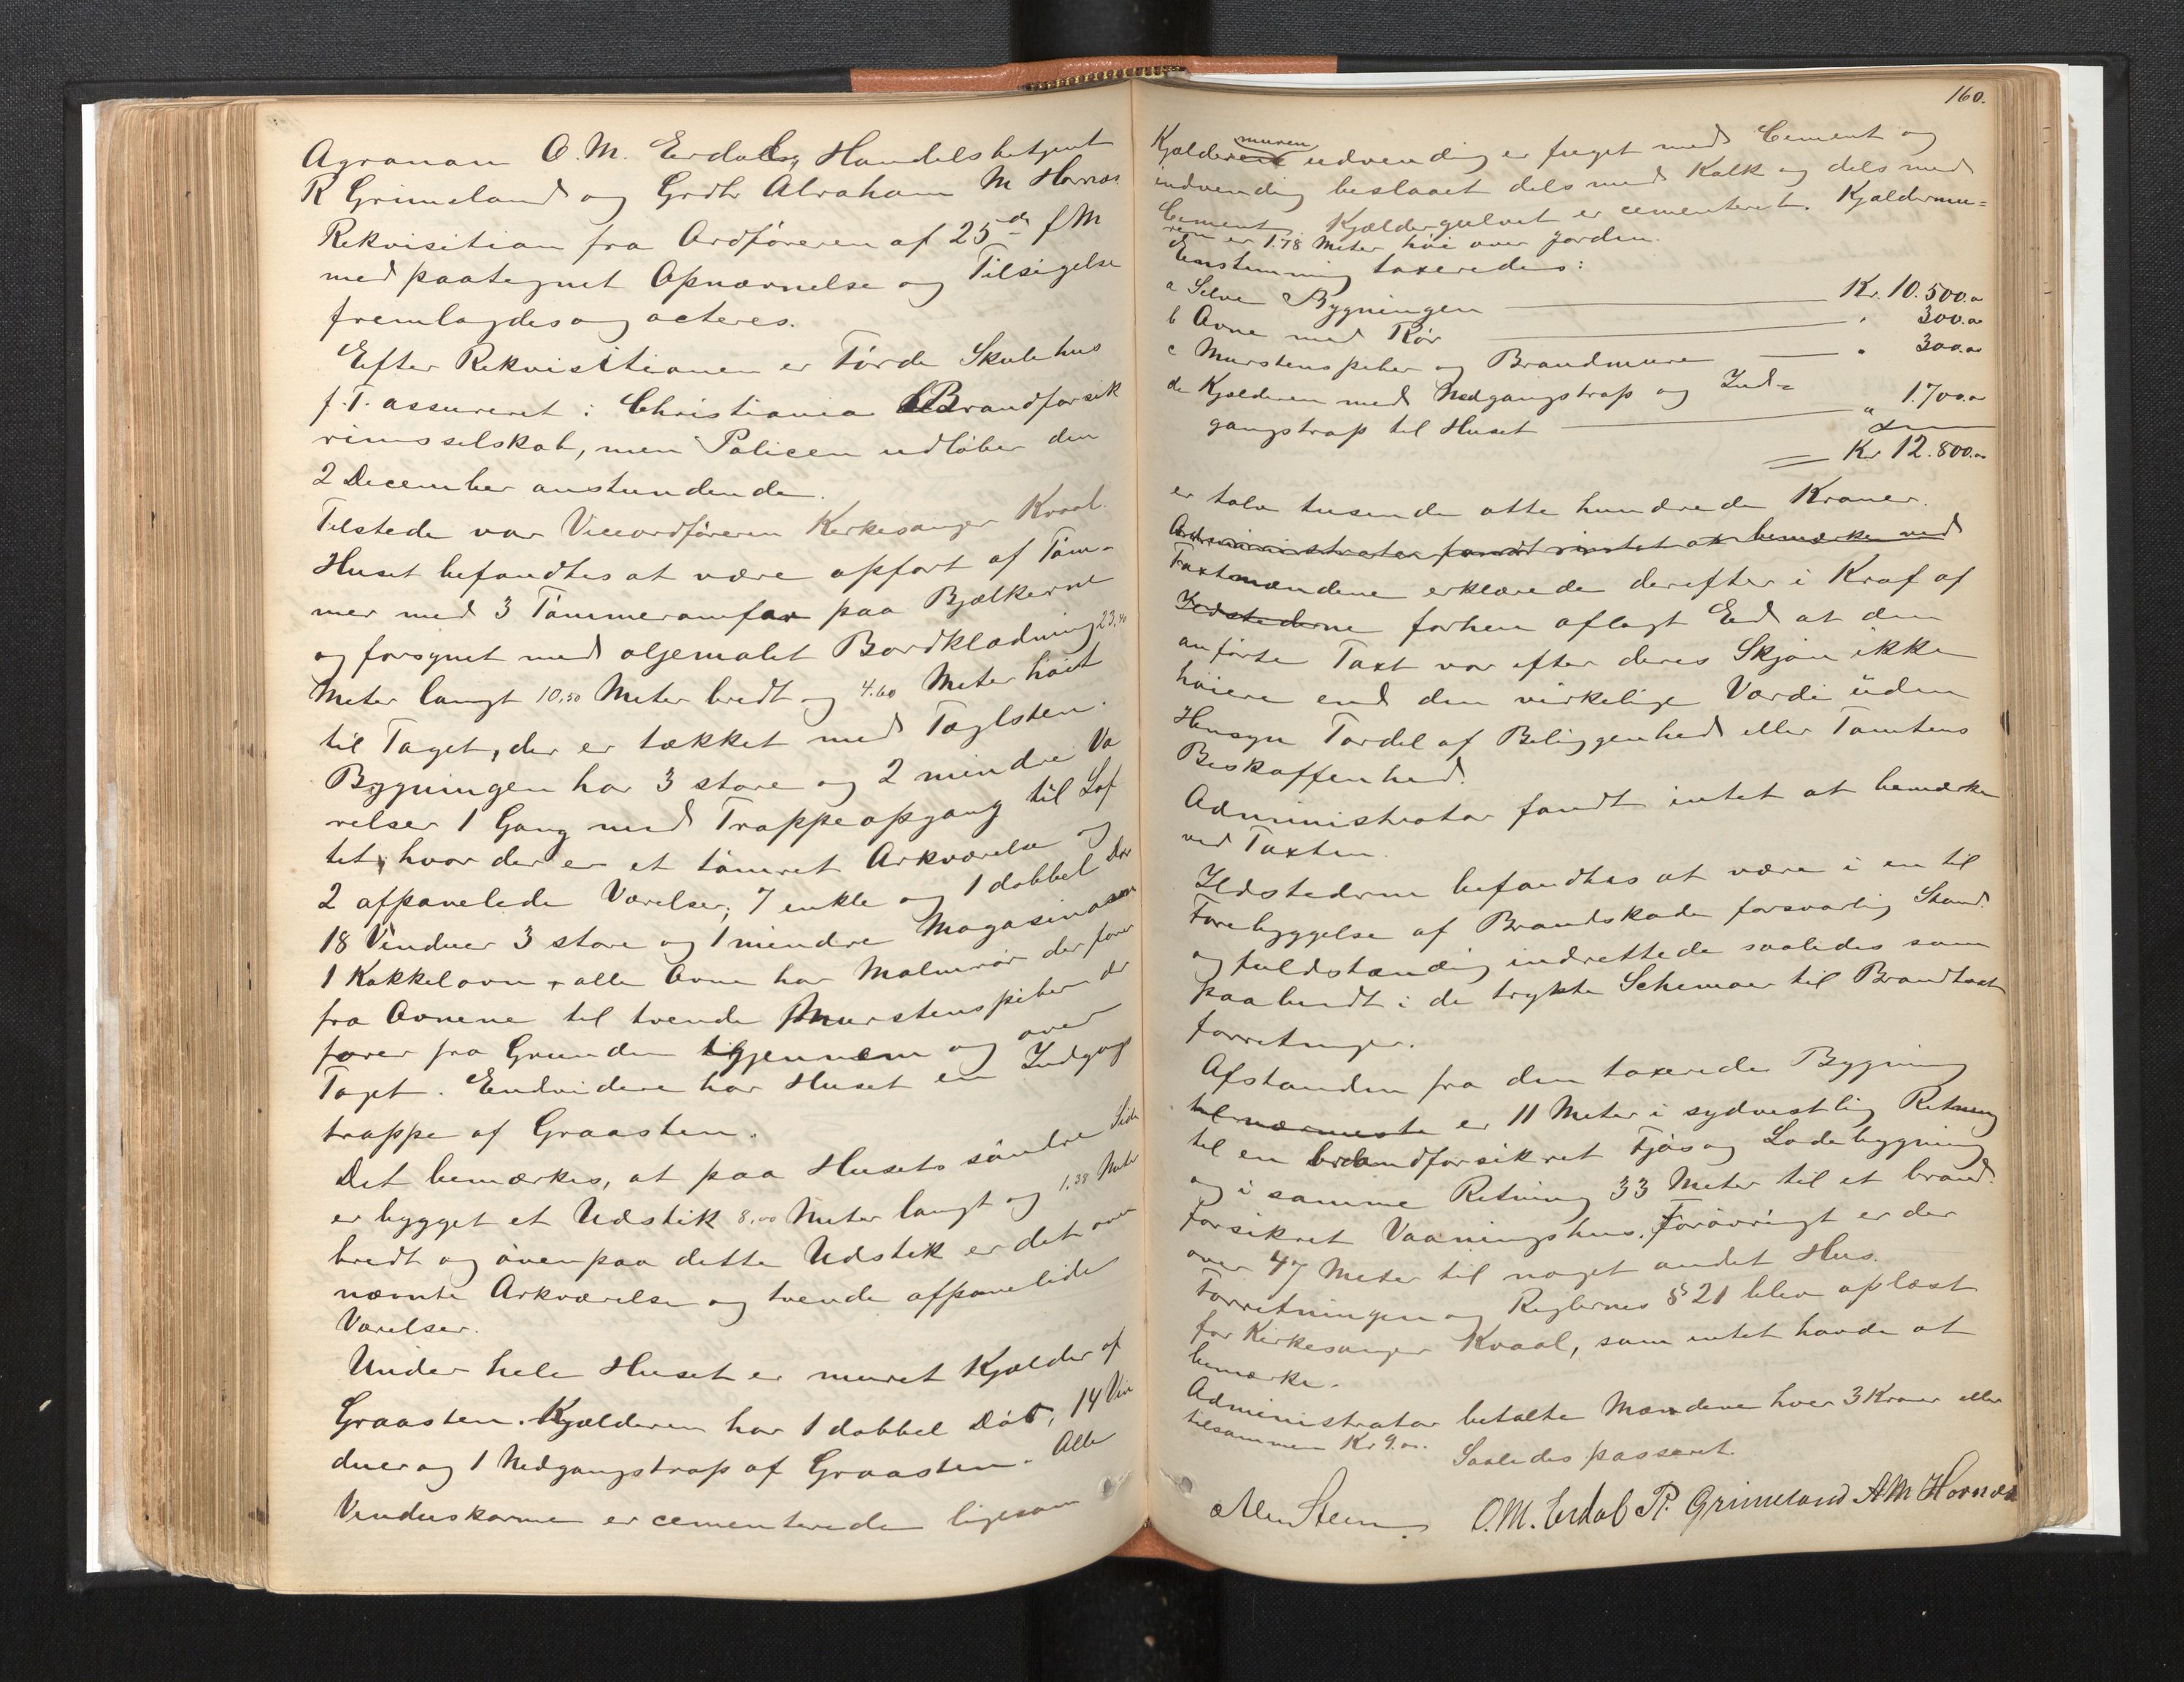 Agronom O. M. Erdal, Handelsbetjent
R Grimeland og Grdbr Abraham M Hornæs
Rekvisition fra Ordføreren af 25de f M
med paategnet Opnævnelse og Tilsigelse
fremlagdes og acteres.
Efter Rekvisitionen er Førde Skulehus
f. T. assureret i Christiania Brandforsik
rinsselskab, men Policen udløber den
2 December anstundende.
Tilstede var Viceordføreren Kirkesanger Kvaal.
Huset befandtes at være opført af Tøm-
mer med 3 Tømmeromfar paa Bjælkerne
og forsynet med oljemalet Bordklædning 23,40
Meter langt 10,50 Meter bredt og 4.60 Meter høit
til Taget, der er tækket med Taglsten.
Bygningen har 3 store og 2 mindre Væ
relser 1 Gang med Trappeopgang til Lof
tet, hvor der er et tømret Arkværelse og
2 afpanelede Værelser; 7 enkle og 1 dobbel Dør
18 Vinduer 3 store og 1 mindre Magasinovn
1 Kakkelovn, alle Ovne har Malmrør der fører
fra Ovnene til tvende Murstenspiber der
fører fra Grunden igjennem og over
Taget. Endvidere har Huset en Indgangs
trappe af Graasten.
Det bemærkes, at paa Husets søndre Side
er bygget et Udstik 8,00 Meter langt og 1,38 Meter
bredt og ovenpaa dette Udstik er det oven
nævnte Arkværelse og tvende afpanelede
Værelser.
Under hele Huset er muret Kjælder af
Graasten. Kjælderen har 1 dobbel Dør, 14 Vin
duer og 1 Nedgangstrap af Graasten. Alle
Vinduskarme er cementerede ligesom
160.
muren
Kjælderen udvendig er fuget med Cement og
indvendig beslaaet dels med Kalk og dels med
Cement. Kjældergulvet er cementeret. Kjældermu=
ren er 1.78 Meter høi over Jorden.
Enstemmig taxeredes:
a Selve Bygningen Kr. 10.500.00
b Ovne med Rør " 300.00
c Murstenspiber og Brandmure " 300.00
d Kjælderen med Nedgangstrap og Ind=
gangstrap til Huset " 1.700.00
= Kr 12.800.00
er tolv tusende otte hundrede Kroner.
Administrator fandt intet at bemærke ved
Taxtmændene erklærede derefter i Kraf af
Ildstederne forhen aflagt Ed at den
anførte Taxt var efter deres Skjøn ikke
høiere end den virkelige Værdi uden
Hensyn Fordel af Beliggenhed eller Tomtens
Beskaffenhed.
Administrator fandt intet at bemærke
ved Taxten.
Ildstederne befandtes at være i en til
Forebyggelse af Brandskade forsvarlig Stand
og fuldstændig indrettede saaledes som
paabudt i de trykte Schemaer til Brandtaxt
forretninger.
Afstanden fra den taxerede Bygning
til nærmeste er 11 Meter i sydvestlig Retning
til en brandforsikret Fjøs og Ladebygning
og i samme Retning 33 Meter til et brand-
forsikret Vaaningshus. Forøvrigt er der
over 47 Meter til noget andet Hus.
Forretningen og Reglernes § 21 blev oplæst
for Kirkesanger Kvaal, som intet havde at
bemærke.
Administrator betalte Mændene hver 3 Kroner eller
tilsammen Kr 9.00.
Saaledes passeret.
O. M. Erdal R. Grimeland A M Hornæs